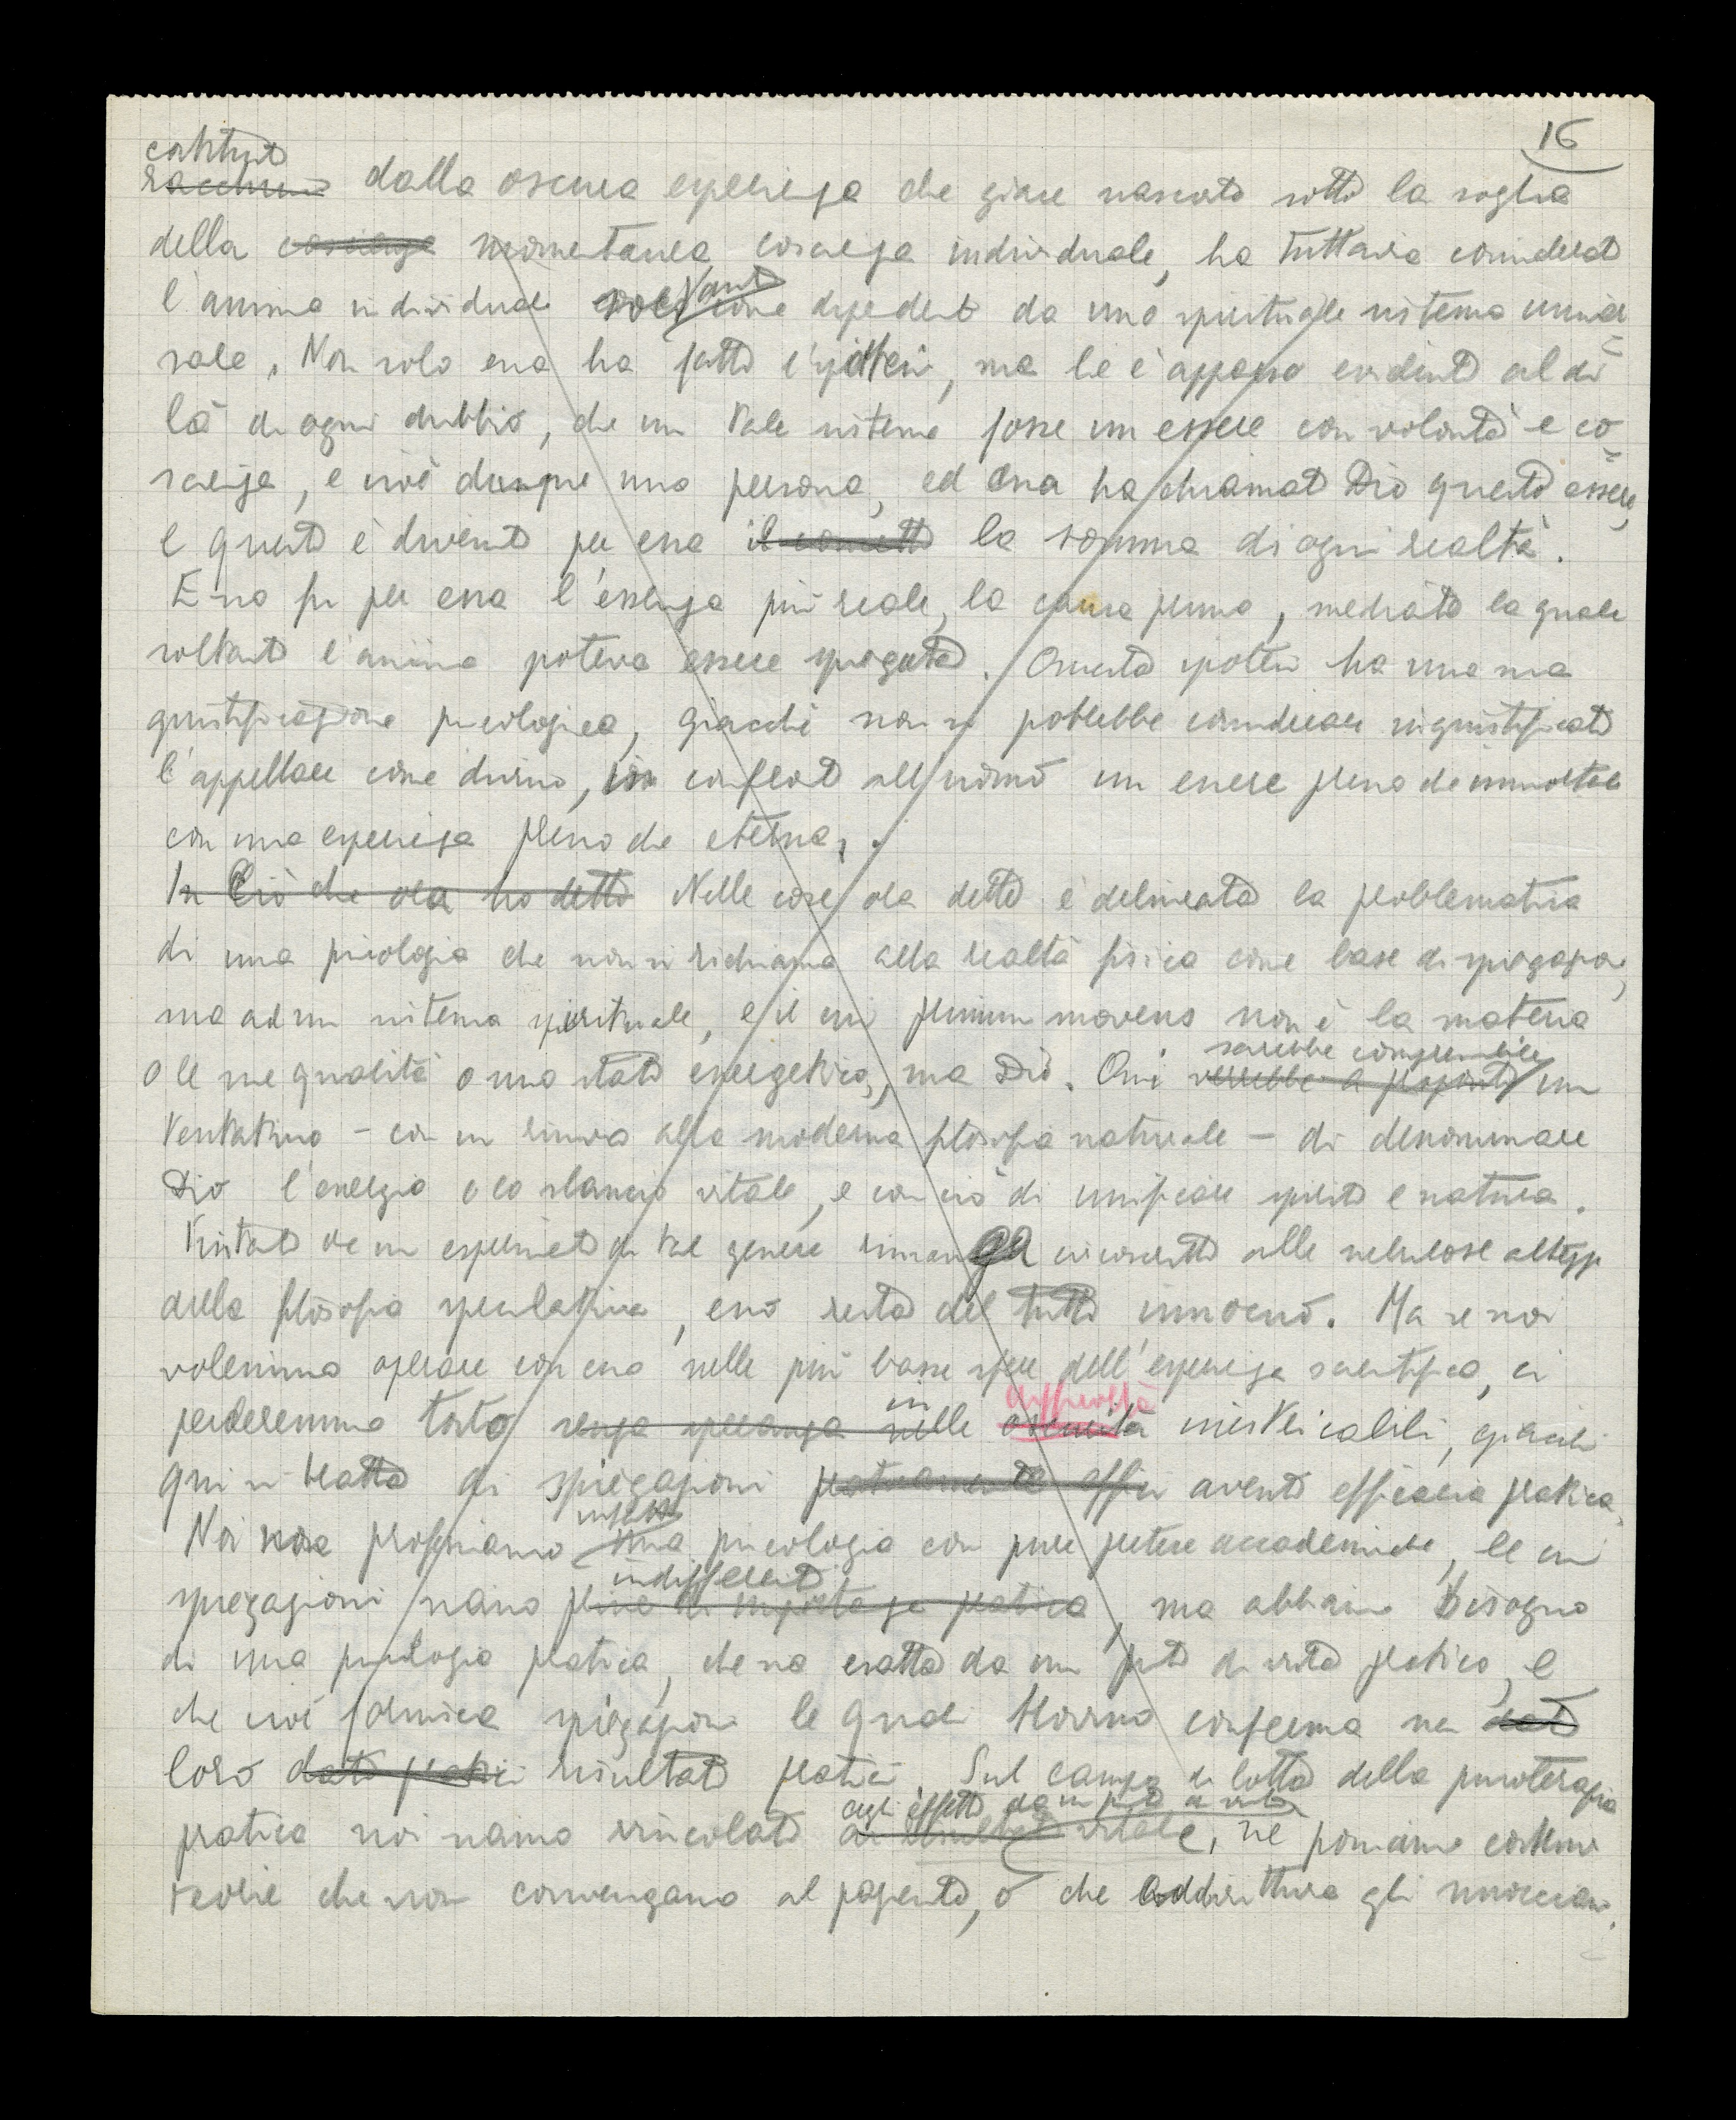 16
costituito
racchiuso dalla oscura esperienza che giace nascosta sotto la soglia
della coscienza momentanea coscienza individuale, ha tuttavia considerato
l'anima individuale come dipendente da uno spirituale sistema univer
sale. Non solo essa ha fatto l'ipotesi, ma le è apparso evidente al di
là di ogni dubbio, che un tale sistema fosse un essere con volontà e co
scienza, e cioè dunque una persona, ed essa ha chiamato Dio questo essere,
e questo è divenuto per essa il concetto la somma di ogni realtà.
Esso fu per essa l'essenza più reale, la causa prima, mediante la quale
soltanto l'anima poteva essere spiegata. Questa ipotesi ha una sua
giustificazione psicologica, giacché non si potrebbe considerare ingiustificato
l'appellare come divino, in confronto all'uomo un essere pressoché immortale
con una esperienza pressoché eterna.
In Ciò che ora ho detto Nelle cose ora dette è delineata la problematica
di una psicologia che non si richiama alla realtà fisica come base di spiegazione,
ma ad un sistema spirituale, e il cui primum movens non è la materia
o le sue qualità o uno stato energetico, ma Dio. Qui verrebbe a proposito sarebbe comprensibile un
tentativo – con un rinvio alla moderna filosofia naturale – di denominare
Dio l'energia o lo slancio vitale, e con ciò di unificare spirito e natura.
Fintanto che un esperimento di tal genere rimanga circoscritto alle nebulose altezze
della filosofia speculativa, esso resta del tutto innocuo. Ma se noi
volessimo operare con essa nelle più basse sfere dell'esperienza scientifica, ci
perderemmo tosto senza speranza nelle in oscurità difficoltà inestricabili, giacché
qui si tratta di spiegazioni praticamente effi aventi efficacia pratica.
Noi non professiamo infatti una psicologia con pure pretese accademiche, le cui
spiegazioni siano prive di importanza pratica indifferenti, ma abbiamo bisogno
di una psicologia pratica, che sia esatta da un punto di vista pratico, e
che cioè fornisca spiegazioni le quali trovino conferma nei dati
loro dati pratici risultati pratici. Sul campo di lotta della psicoterapia
pratica noi siamo vincolati agli effetti da un punto di vista vitale, né possiamo costruire
teorie che non convengano al paziente, o che addirittura gli nuocciano.